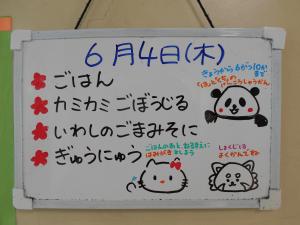 6月4日(木)
きょうから6がつ10かまで
「はとくちのけんこうしゅうかん
ごはん
カミカミごぼうじる
いわしのごまみそに
ぎゅうにゅう
ごはんのあと、ねるまえに
はみがきをしよう
しょくじを
よくかんでね